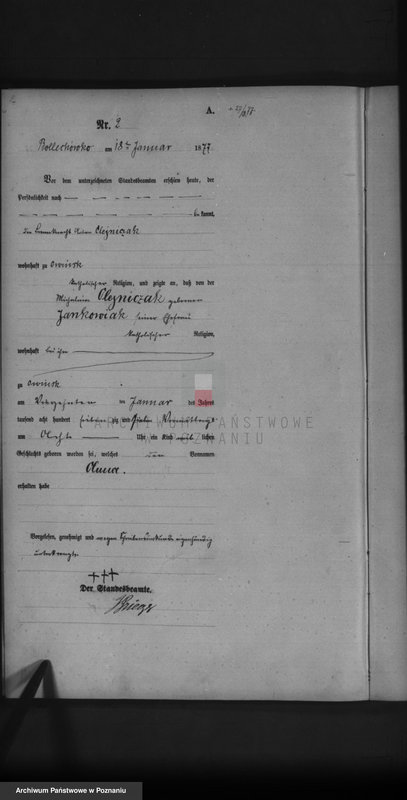 A.
Nr. 2
am 18ten Januar 1877
Vor dem unterzeichneten Standesbeamten erschien heute, der
Persönlichkeit nach
be kannt,
Olejniczak
wohnhaft zu Owinsk
katholischer Religion, und zeigte an, daß von der
Olejniczak geborenen
Jankowiak seiner Ehefrau
katholischer Religion,
wohnhaft bei ihm
zu Owinsk
am ten Januar des Jahres
tausend acht hundert siebenzig und sieben Vormittags
um Uhr ein Kind weib lichen
Geschlechts geboren worden sei, welches den Vornamen
erhalten habe
ARCHIWUM PAŃSTWOWE
W POZNANIU
Vorgelesen, genehmigt und wegen Schreibensunkunde eigenhändig
unterkreuzt.
+++
Der Standesbeamte.
Archiwum Państwowe w Poznaniu